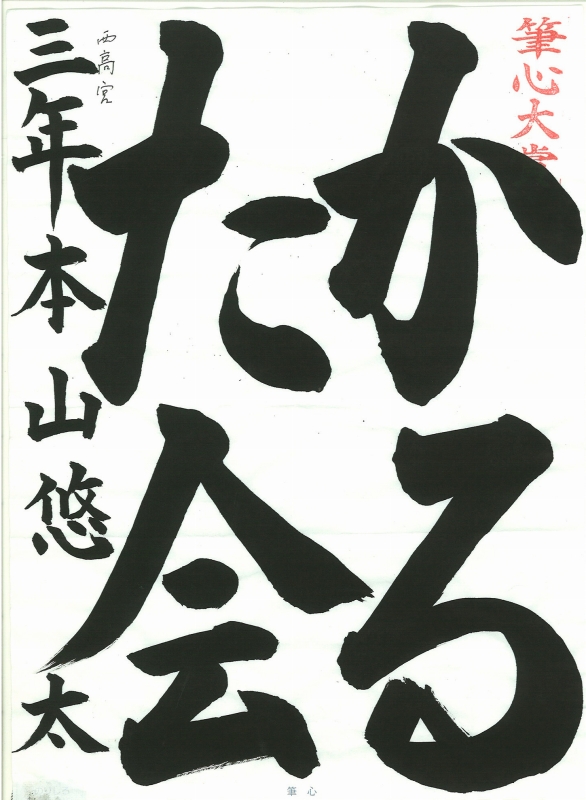 筆心大賞
かる
た会
西高宮
三年本山悠太
筆心